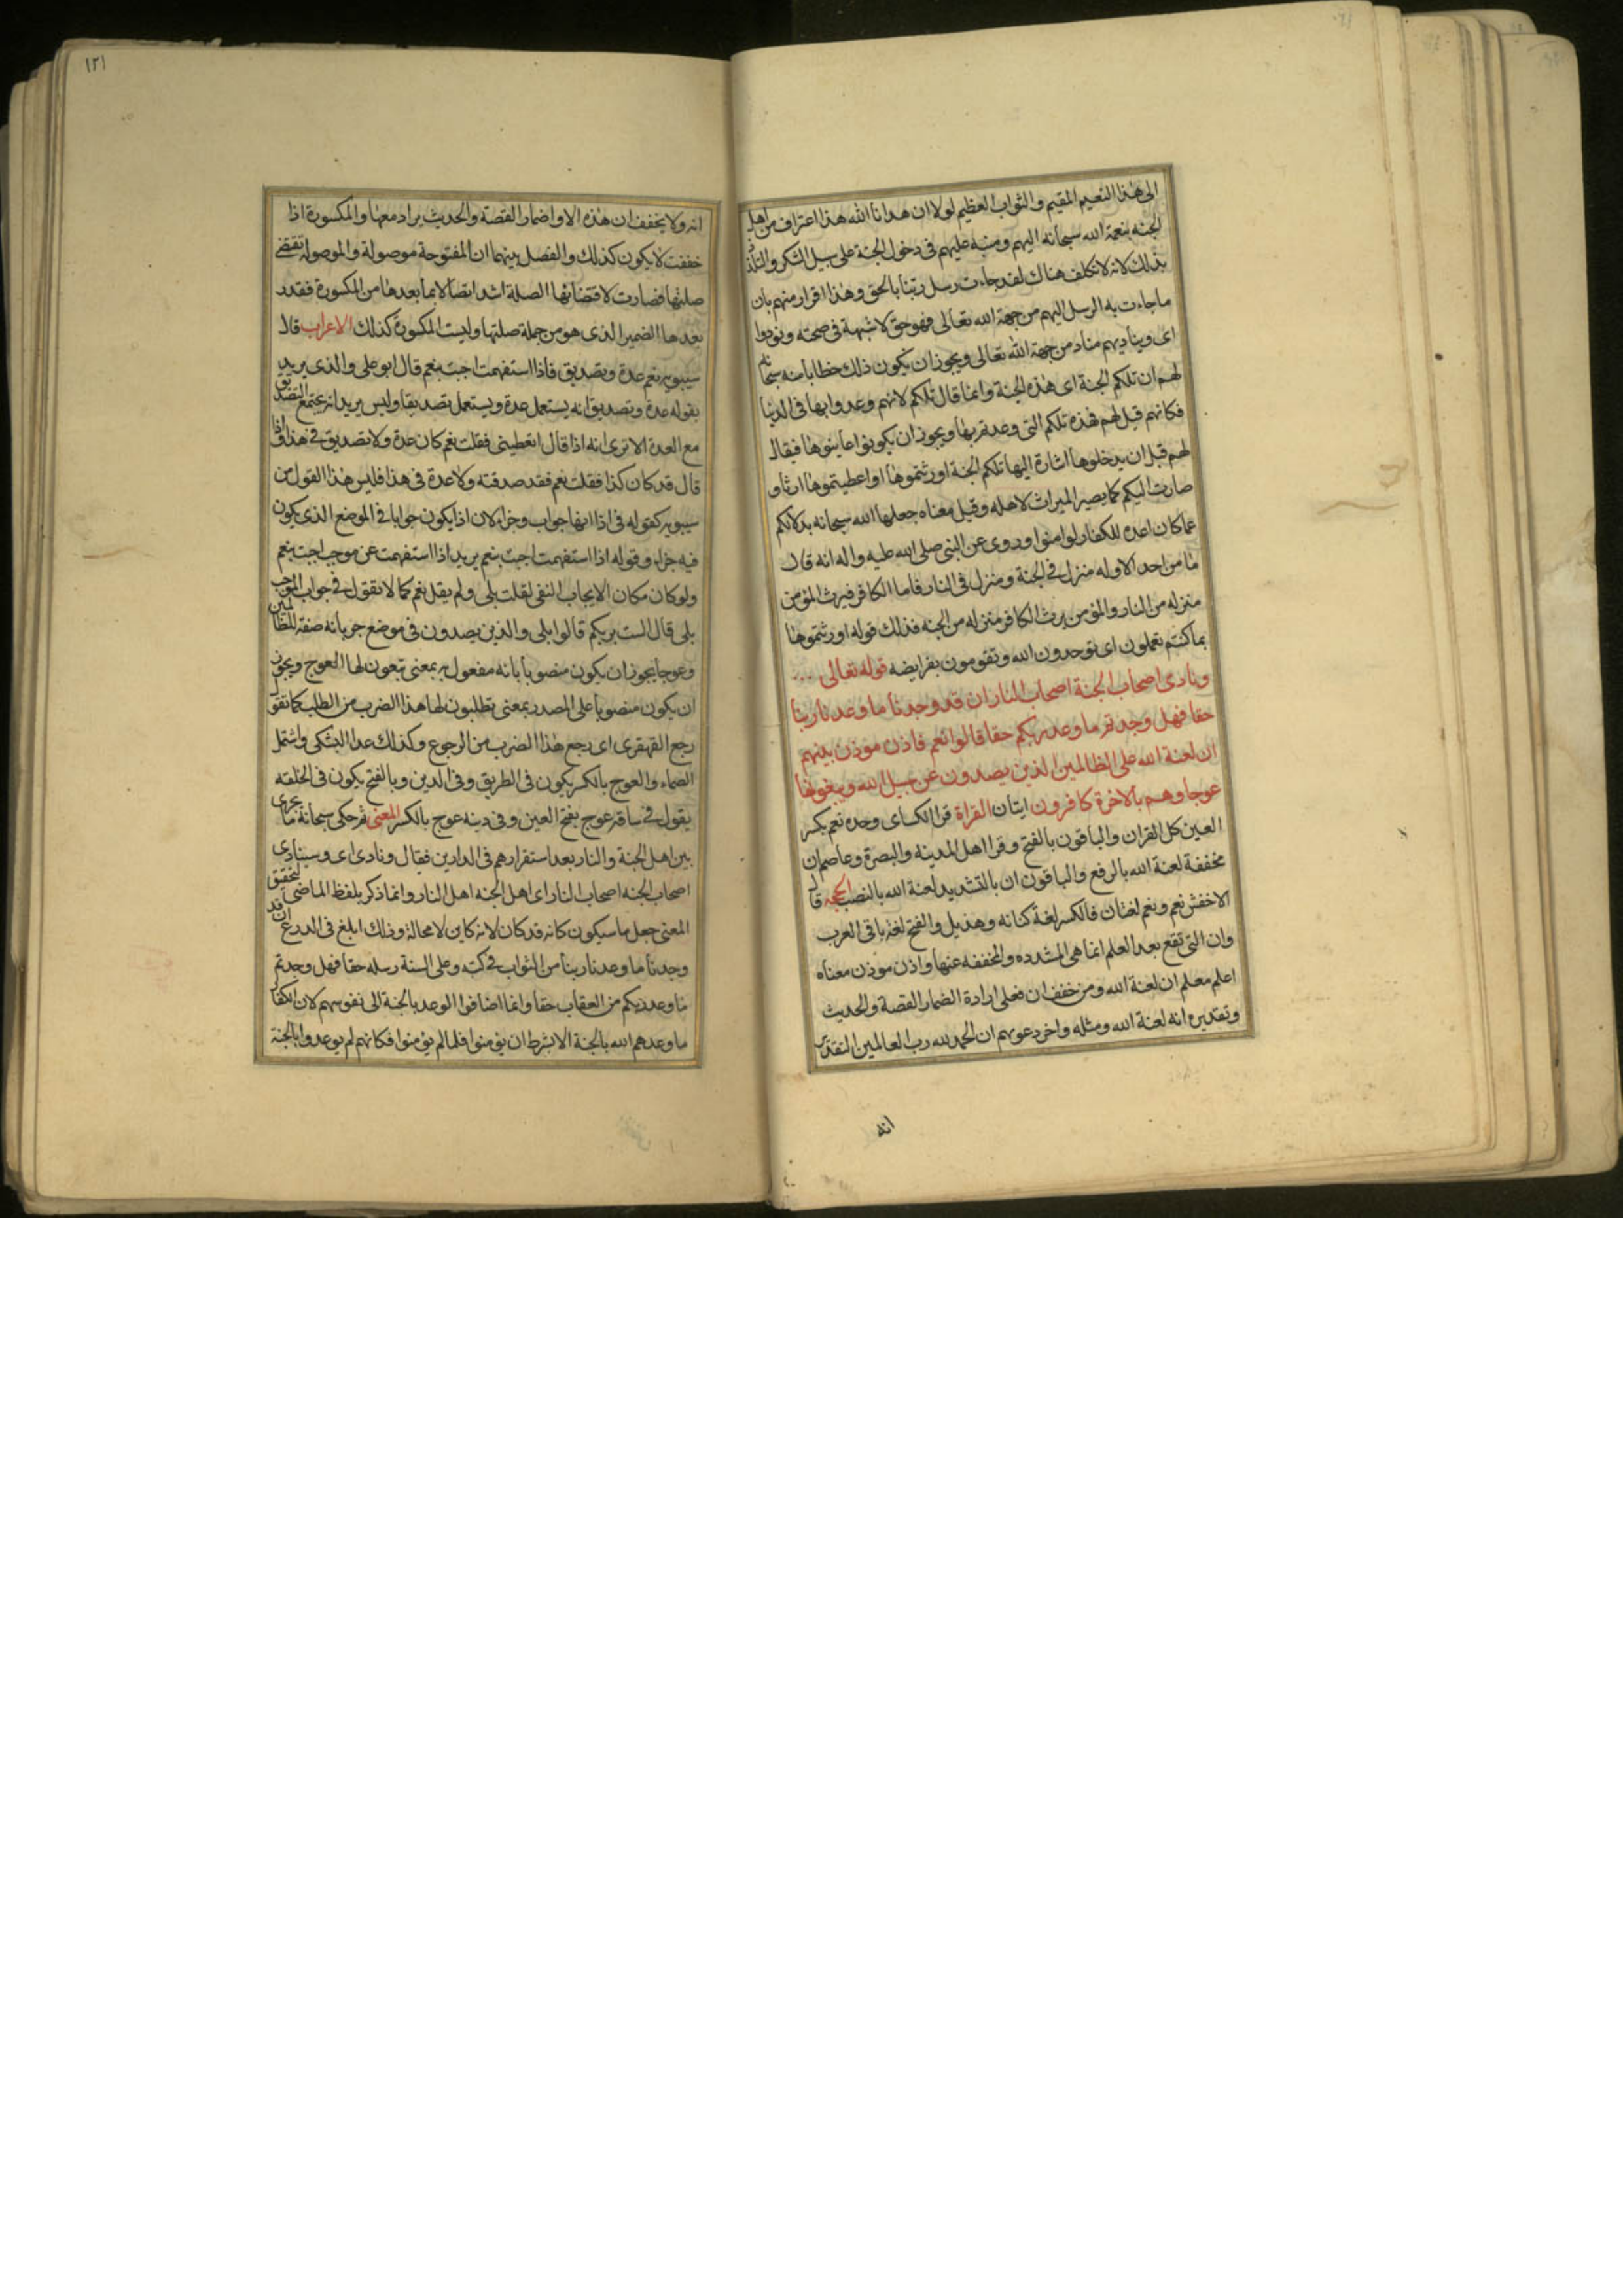 الى هذا النعيم المقيم والثواب العظيم لولا ان هدانا الله هذا اعتراف من اهل
الجنه بنعمة الله سبحانه اليهم ومنه عليهم فى دخول الجنة على سبيل الشكر والتلذذ
بذلك لانه لا تكلف هناك لقد جاءت رسل ربنا بالحق وهذا اقرار منهم بان
ما جاءت به الرسل اليهم من جهة الله تعالى فهو حق لا شبهة فى صحته ونودوا
اى ويناديهم مناد من جهة الله تعالى ويجوز ان يكون ذلك خطابا منه سبحانه
لهم ان تلكم الجنة اى هذه الجنة وانما قال تلكم لانهم وعدوا بها فى الدنيا
فكانهم قيل لهم هذه تلكم التى وعدتم بها ويجوز ان يكونوا عاينوها فيقال
لهم قبل ان يدخلوها اشارة اليها تلكم الجنة اورثتموها او اعطيتموها ارثا و
صارت اليكم كما يصير الميراث لاهله وقيل معناه جعلها الله سبحانه بدلا لكم
عما كان اعده للكفار لو امنوا وروى عن النبى صلى الله عليه واله انه قال
ما من احد الا وله منزل فى الجنة ومنزل فى النار فاما الكافر فيرث المؤمن
منزله من النار والمؤمن يرث الكافر منزله من الجنه فذلك قوله اورثتموها
بما كنتم تعملون اى توحدون الله وتقومون بفرايضه قوله تعالى
ونادى اصحاب الجنة اصحاب النار ان قد وجدنا ما وعدنا ربنا
حقا فهل وجدتم ما وعد ربكم حقا قالوا نعم فاذن موذن بينهم
ان لعنة الله على الظالمين الذين يصدون عن سبيل الله ويبغونها
عوجا وهم بالاخرة كافرون ايتان القراة قرا الكساى وحده نعم بكسر
العين كل القران والباقون بالفتح وقرا اهل المدينه والبصرة وعاصم ان
مخففة لعنة الله بالرفع والباقون ان بالتشديد لعنة الله بالنصب الحجه قال
الاخفش نعم ونعم لغتان فالكسر لغة كنانه وهذيل والفتح لغة باقى العرب
وان التى تقع بعد العلم انما هى المشدده والمخففه عنها واذن موذن معناه
اعلم معلم ان لعنة الله ومن خفف ان فعلى ارادة اضمار القصة والحديث
وتقديره انه لعنة الله ومثله واخر دعويهم ان الحمد لله رب العالمين التقدير
انه
١٢١
انه ولا يخفف ان هذه الا واضمار القصة والحديث يراد معها والمكسورة اذا
خففت لا يكون كذلك والفصل بينهما ان المفتوحة موصولة والموصولة تقتضى
صلتها فصارت لاقتضائها الصلة اشد اتصالا بما بعدها من المكسورة فقدر
بعدها الضمير الذى هو من جملة صلتها وليست المكسورة كذلك الاعراب قال
سيبويه نعم عدة وتصديق فاذا استفهمت اجبت بنعم قال ابو على والذى يريد
بقوله عدة وتصديق انه يستعمل عدة ويستعمل تصديقا وليس يريد انه يجتمع التصديق
مع العدة الا ترى انه اذا قال اتعطينى فقلت نعم كان عدة ولا تصديق فى هذا واذا
قال قد كان كذا فقلت نعم فقد صدقته ولا عدة فى هذا فليس هذا القول من
سيبويه كقوله فى اذا انها جواب وجزاء لان اذا يكون جوابا فى الموضع الذى يكون
فيه جزاء وقوله اذا استفهمت اجبت بنعم يريد اذا استفهمت عن موجب اجبت بنعم
ولو كان مكان الايجاب النفى لقلت بلى ولم يقل نعم كما لا تقول فى جواب الموجب
بلى قال الست بربكم قالوا بلى والذين يصدون فى موضع جر بانه صفة للظالمين
وعوجا يجوز ان يكون منصوبا بانه مفعول به بمعنى تبغون لها العوج ويجوز
ان يكون منصوبا على المصدر بمعنى تطلبون لها هذا الضرب من الطلب كما تقول
رجع القهقرى اى رجع هذا الضرب من الرجوع وكذلك عدا البشكى واشتمل
الصماء والعوج بالكسر يكون فى الطريق وفى الدين وبالفتح يكون فى الخلقه
يقول فى ساقه عوج بفتح العين وفى دينه عوج بالكسر المعنى ثم حكى سبحانه ما يجرى
بين اهل الجنة والنار بعد استقرارهم فى الدارين فقال ونادى اى وسينادى
اصحاب الجنه اصحاب النار اى اهل الجنه اهل النار وانما ذكر بلفظ الماضى لتحقيق
المعنى جعل ما سيكون كانه قد كان لانه كاين لا محالة وذلك ابلغ فى الردع ان قد
وجدنا ما وعدنا ربنا من الثواب فى كتبه وعلى السنة رسله حقا فهل وجدتم
ما وعد ربكم من العقاب حقا وانما اضافوا الوعد بالجنة الى نفوسهم لان الكفار
ما وعدهم الله بالجنة الا بشرط ان يؤمنوا فلما لم يؤمنوا فكانهم لم يوعدوا بالجنة